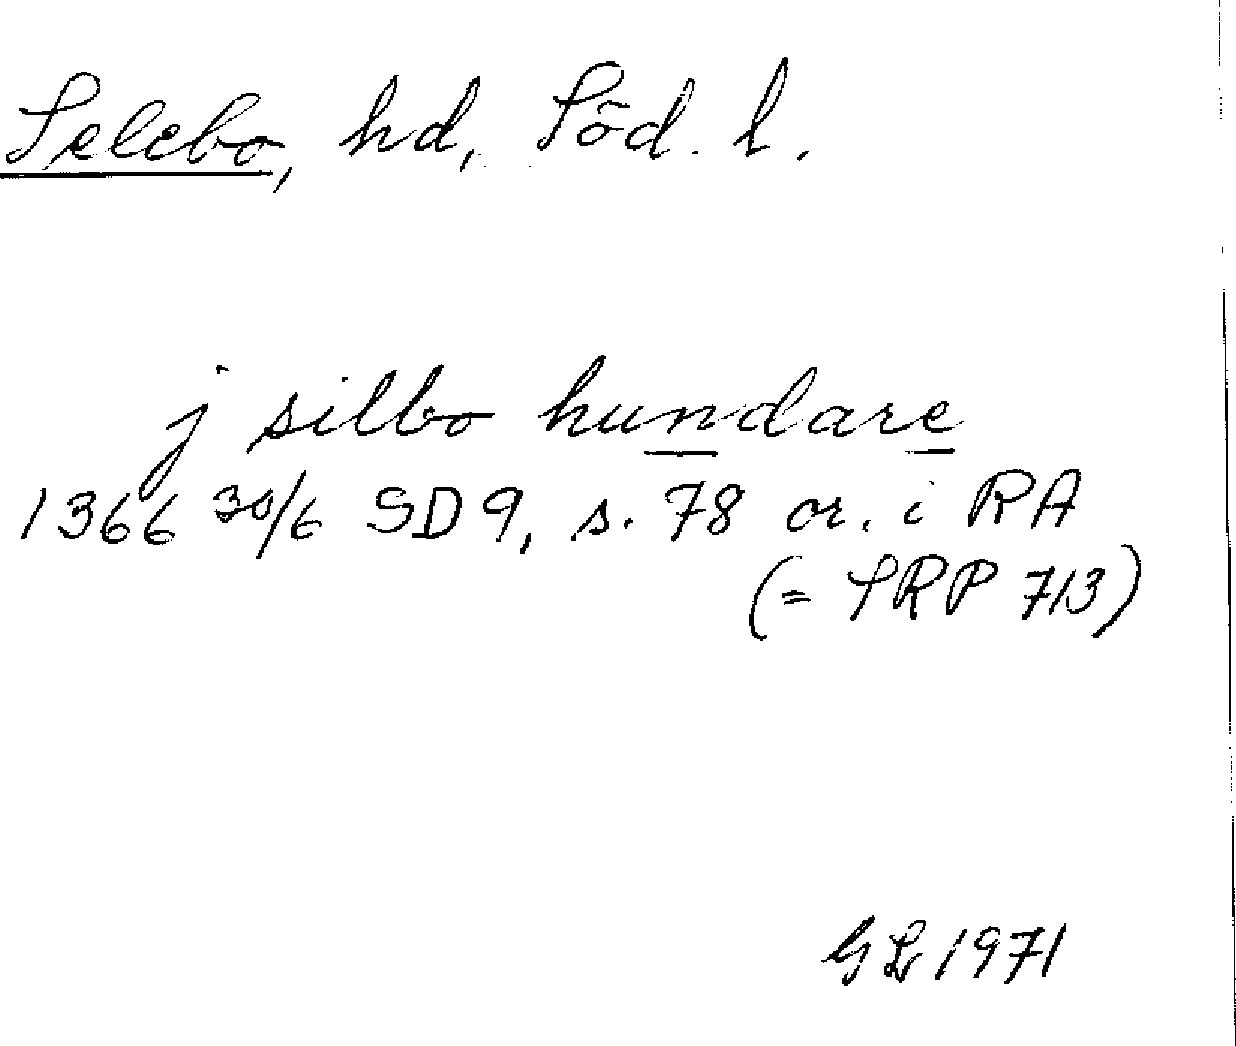 Selebo, hd, Söd. l.
j silbo hundare
1366 30/6 SD 9, s. 78 or. i RA
(= SRP 713)
GL 1971